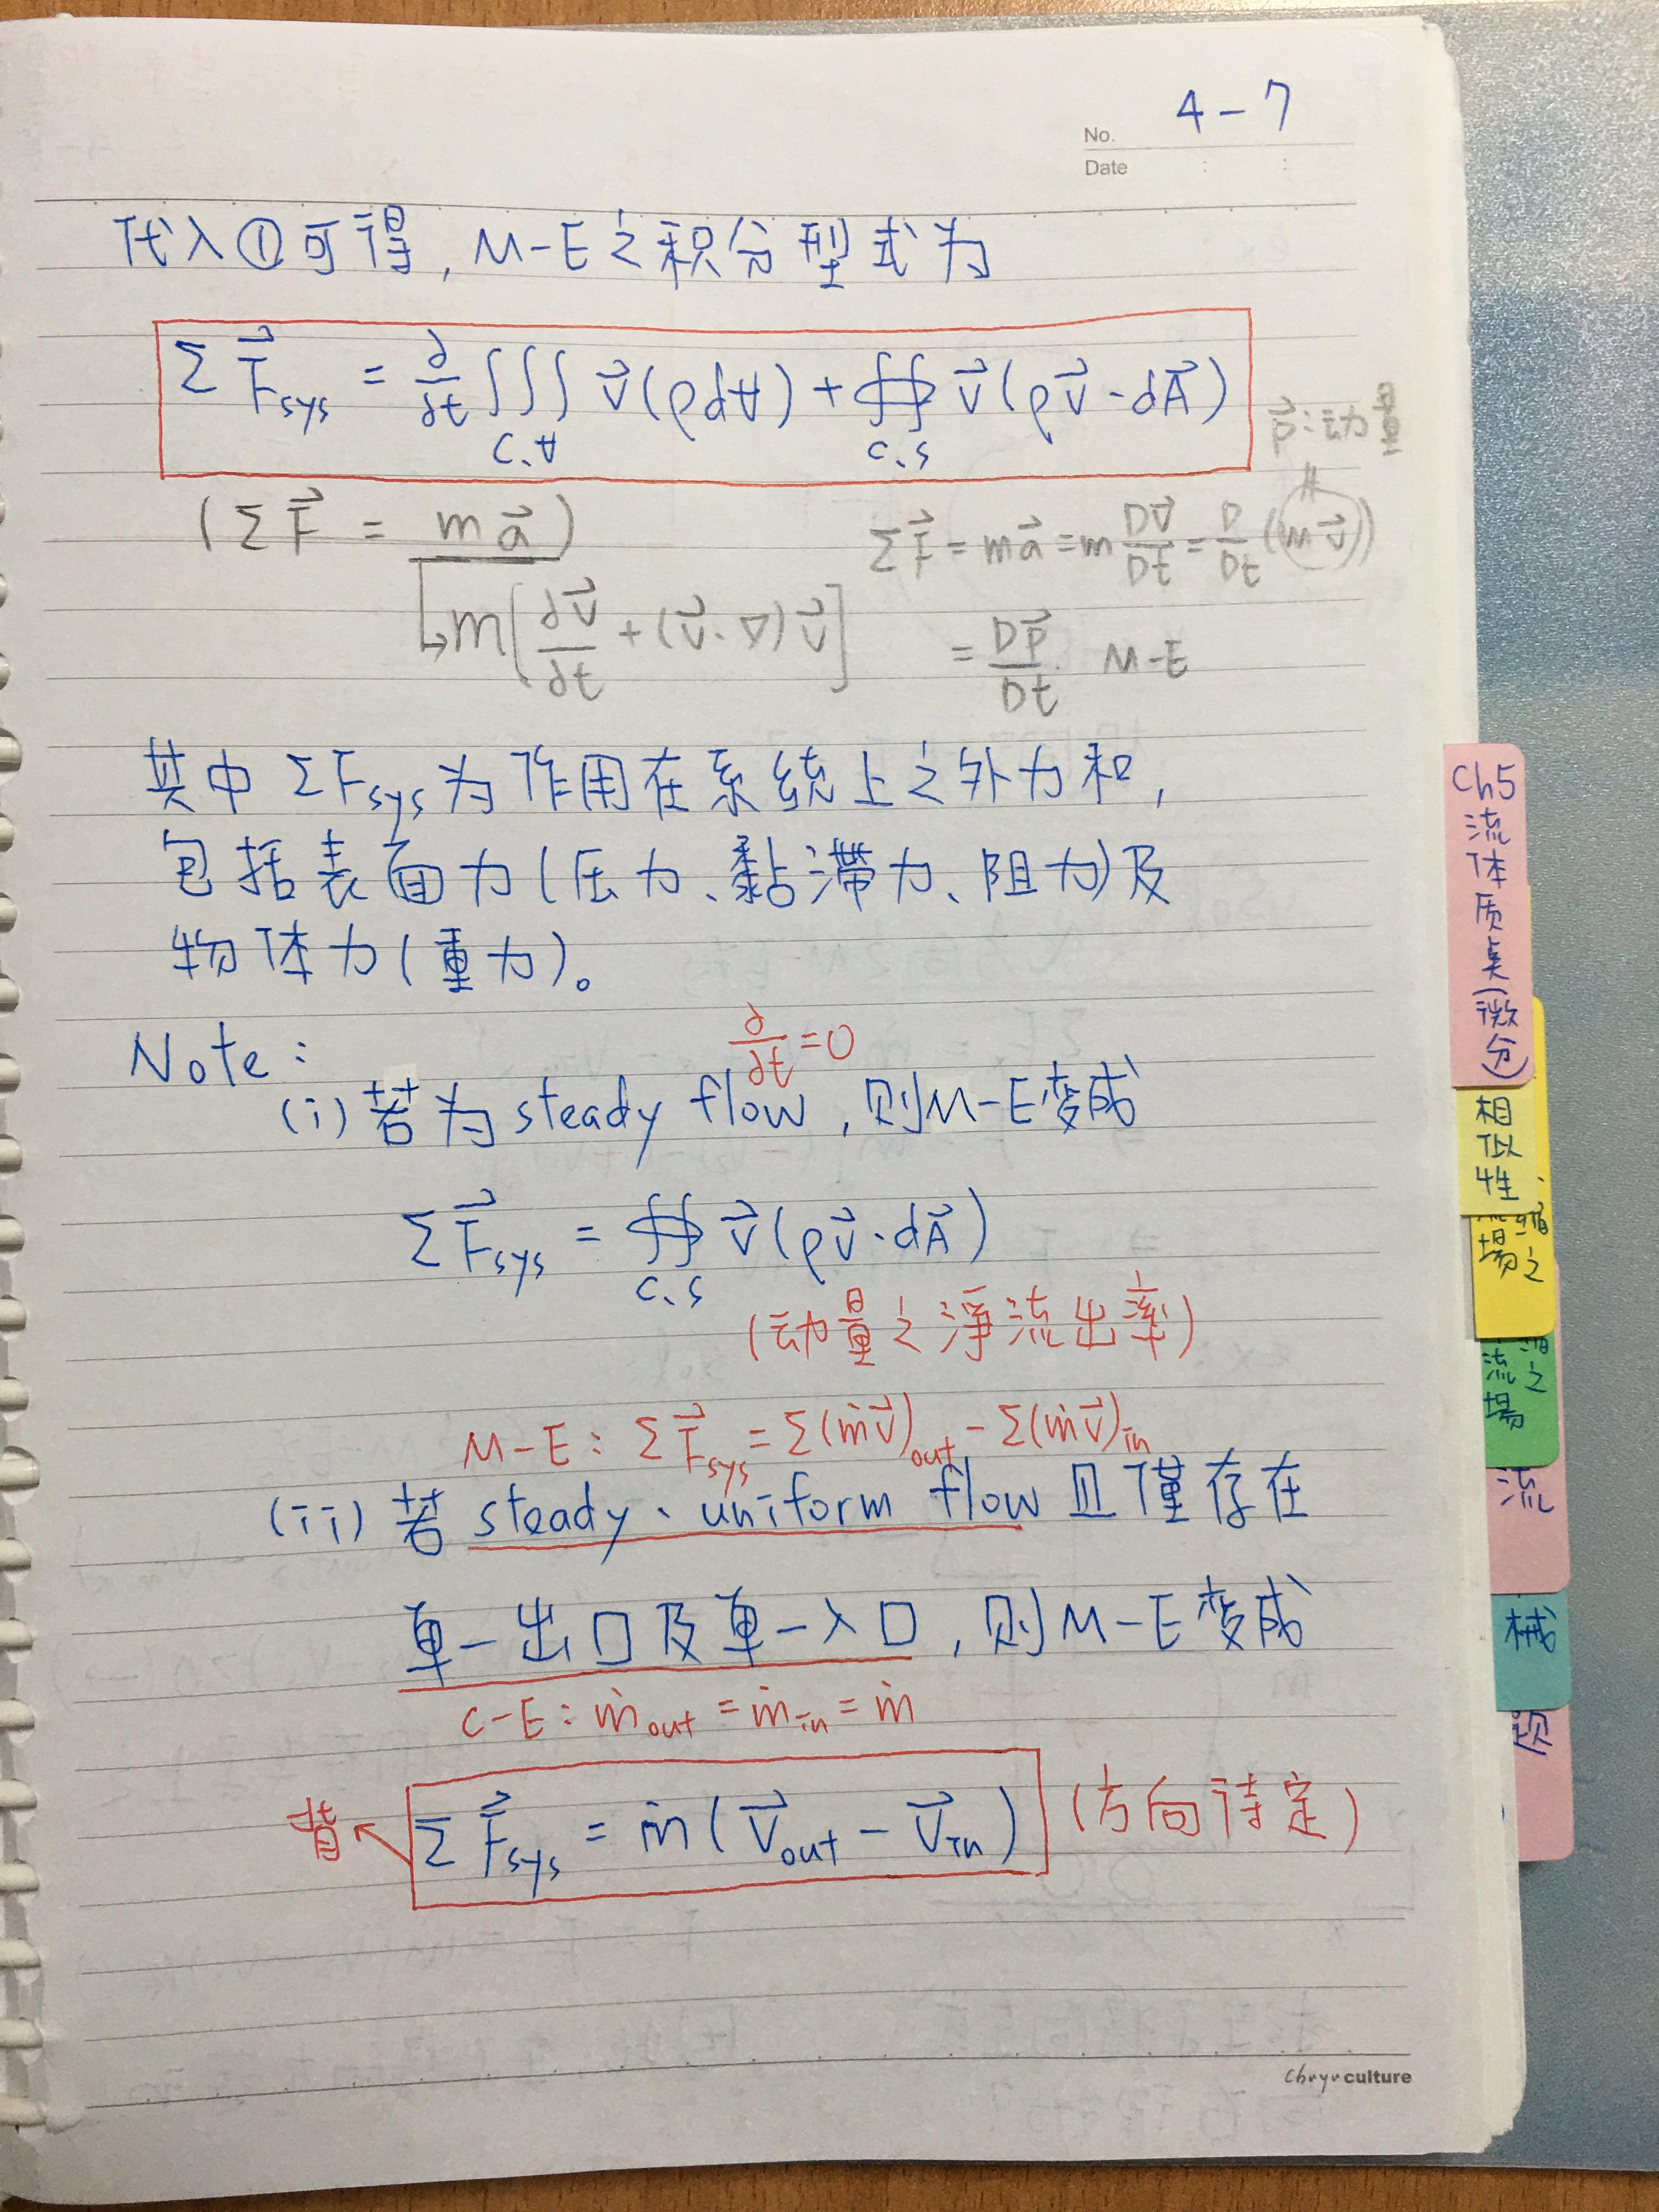 No. 4-7
Date
代入①可得, M-E之积分型式为
Σ F⃗sys = ∂/∂t ∭c.∀ v⃗(ρd∀) + ∯c.s v⃗(ρv⃗·dA⃗)
p⃗:动量
(Σ F⃗ = ma⃗)
ΣF⃗ = ma⃗ = m Dv⃗/Dt = D/Dt (mv⃗)
↳ m[∂v⃗/∂t + (v⃗·∇)v⃗]
= Dp⃗/Dt M-E
其中 ΣFsys为作用在系统上之外力和,
包括表面力(压力、黏滯力、阻力)及
物体力(重力)。
Note:
∂/∂t = 0
(i) 若为 steady flow, 则M-E变成
Σ F⃗sys = ∯c.s v⃗(ρv⃗·dA⃗)
(动量之淨流出率)
M-E: ΣF⃗sys = Σ(ṁv⃗)out - Σ(ṁv⃗)in
(ii) 若 steady、uniform flow 且僅存在
单一出口及单一入口, 则M-E变成
C-E: ṁout = ṁin = ṁ
背 ← Σ F⃗sys = ṁ(V⃗out - V⃗in) (方向待定)
Ch5
流体质点(微分)
相似性
場之
流之
場
流
械
题
Chuyu culture